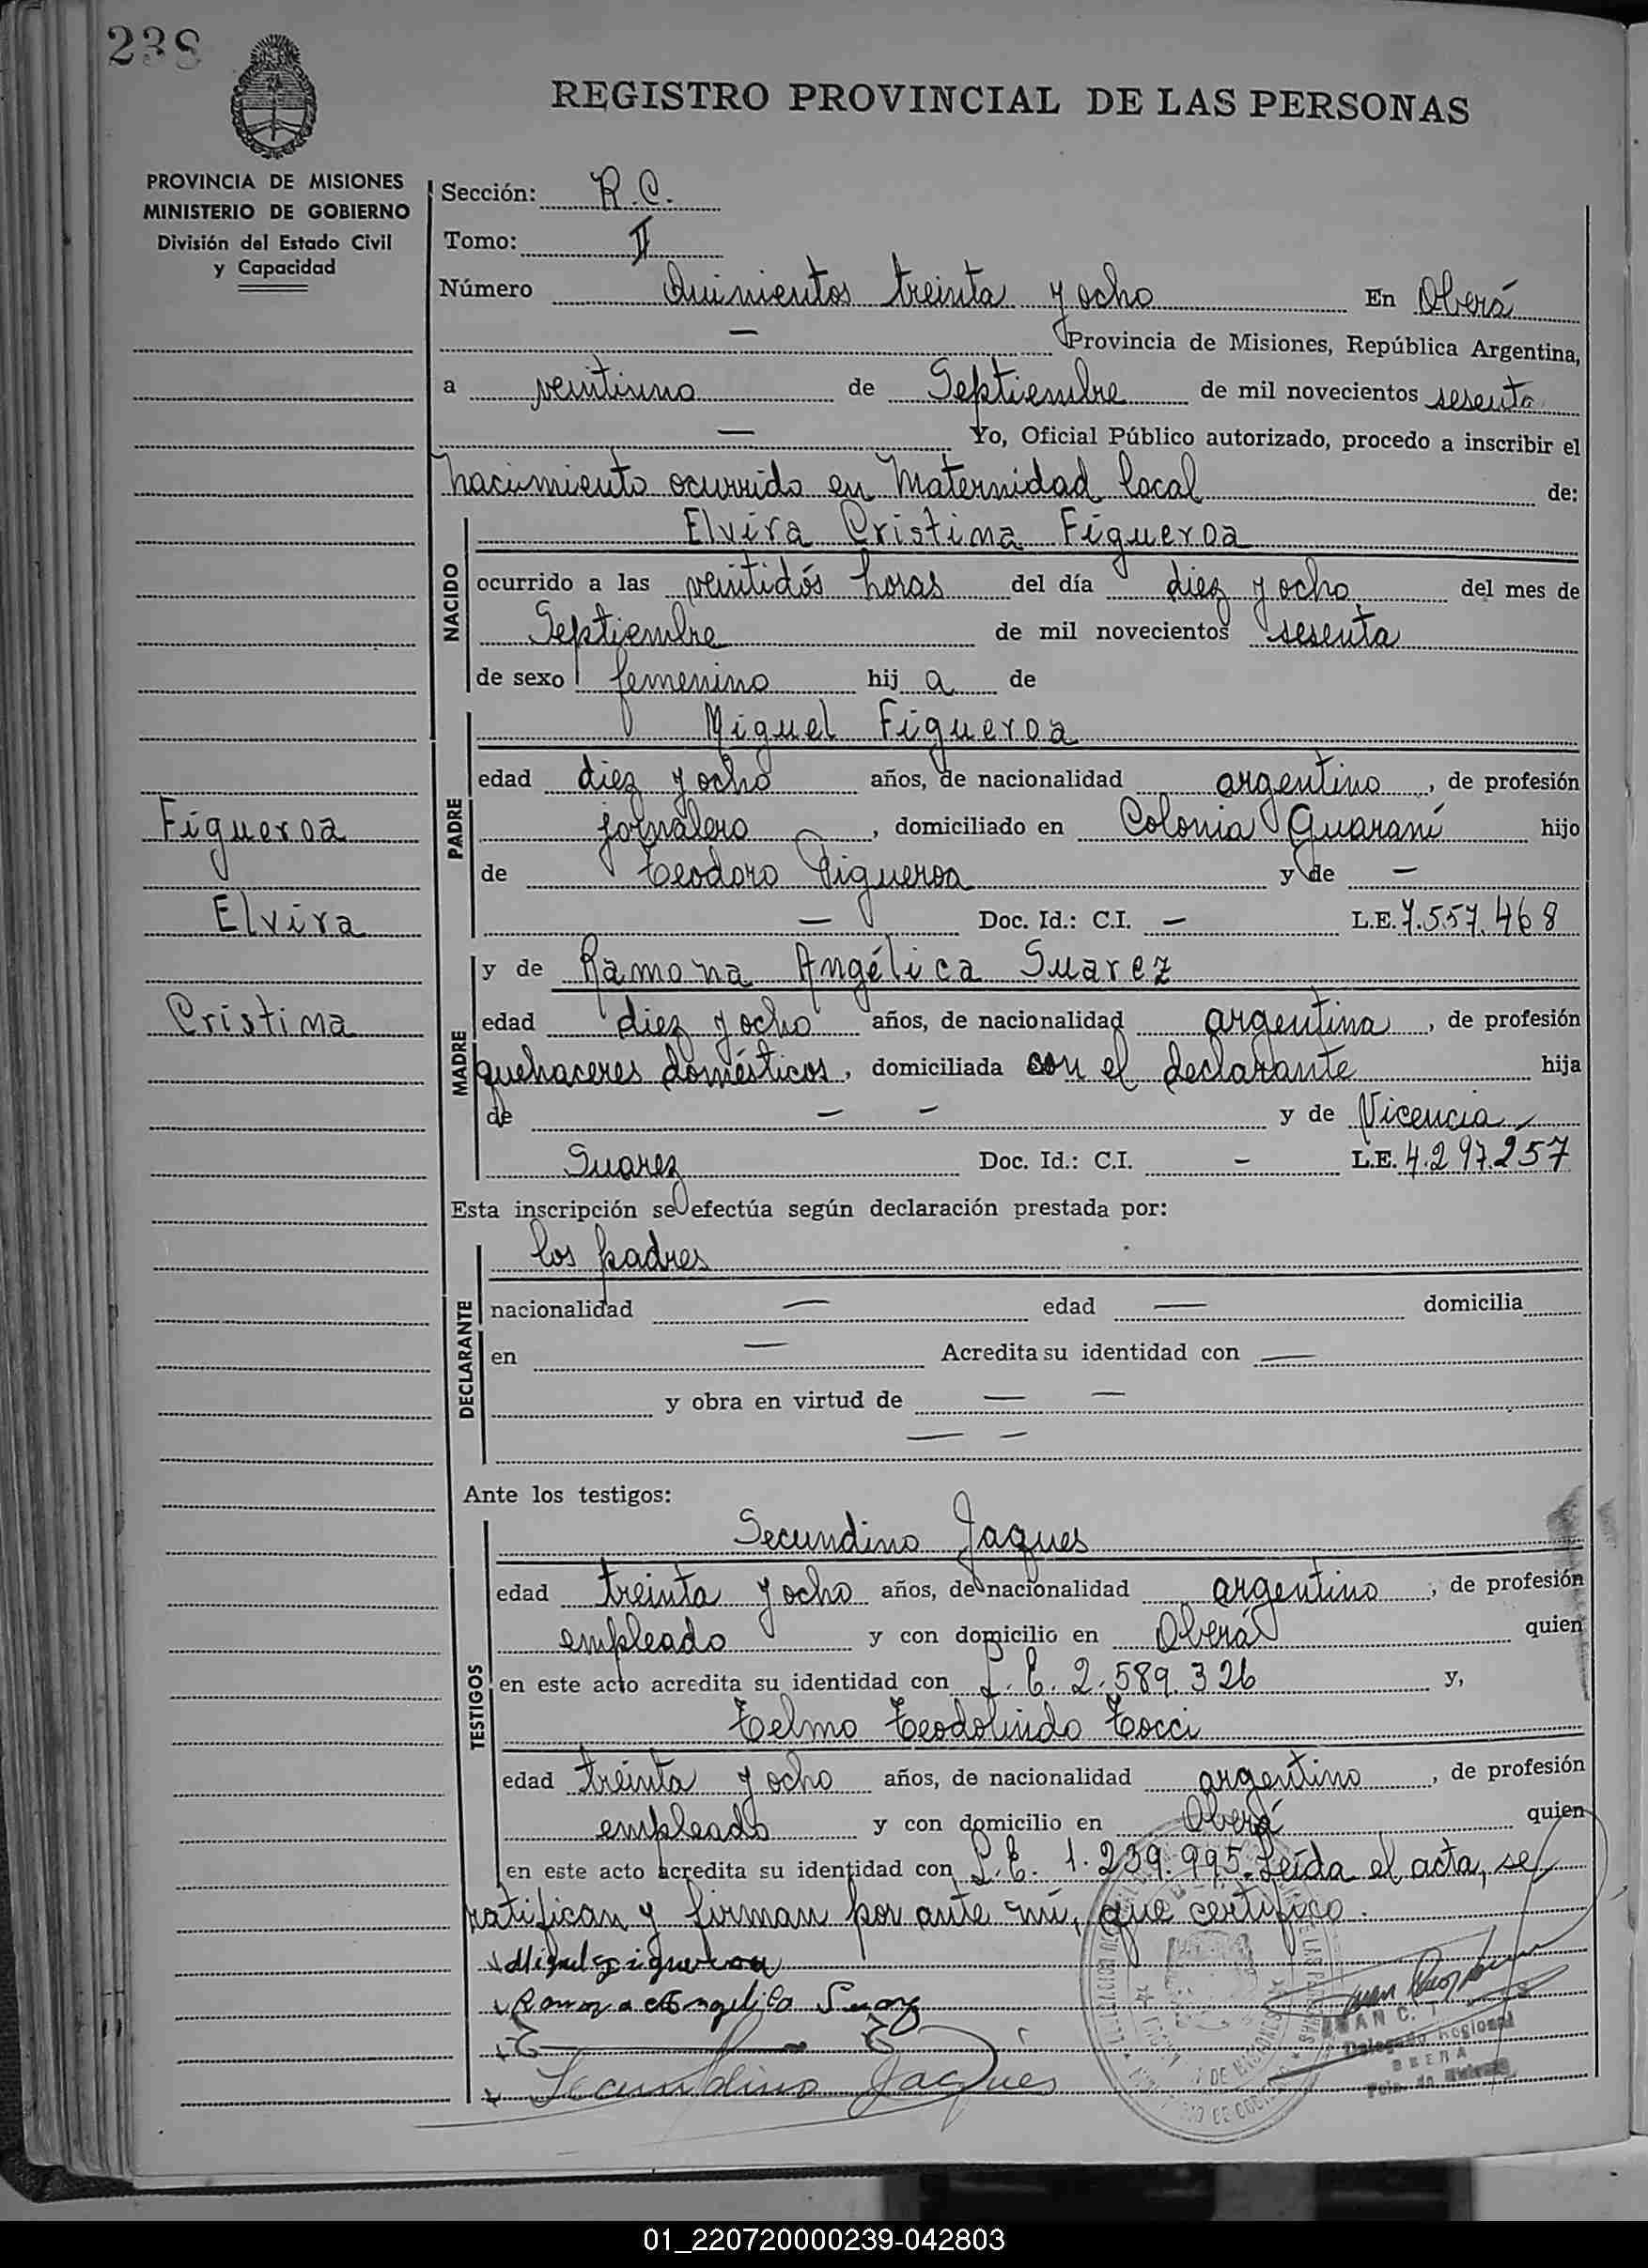 238
REGISTRO PROVINCIAL DE LAS PERSONAS
PROVINCIA DE MISIONES
MINISTERIO DE GOBIERNO
División del Estado Civil
y Capacidad
Sección: R.C.
Tomo: II
Número Quinientos treinta y ocho En Oberá
— Provincia de Misiones, República Argentina,
a veintiuno de Septiembre de mil novecientos sesenta
— Yo, Oficial Público autorizado, procedo a inscribir el
nacimiento ocurrido en Maternidad local de:
NACIDO
Elvira Cristina Figueroa
ocurrido a las veintidós horas del día diez y ocho del mes de
Septiembre de mil novecientos sesenta
de sexo femenino hij a de
PADRE
Miguel Figueroa
edad diez y ocho años, de nacionalidad argentino, de profesión
jornalero, domiciliado en Colonia Guaraní hijo
de Teodoro Figueroa y de —
— Doc. Id.: C.I. — L.E. 7.557.468
Figueroa
Elvira
Cristina
MADRE
y de Ramona Angélica Suarez
edad diez y ocho años, de nacionalidad argentina, de profesión
quehaceres domésticos, domiciliada con el declarante hija
de — — y de Vicencia
Suarez Doc. Id.: C.I. - L.E. 4.297.257
Esta inscripción se efectúa según declaración prestada por:
DECLARANTE
los padres
nacionalidad — edad — domicilia
en — Acredita su identidad con —
y obra en virtud de — —
— —
Ante los testigos:
TESTIGOS
Secundino Jaques
edad treinta y ocho años, de nacionalidad argentino, de profesión
empleado y con domicilio en Oberá quien
en este acto acredita su identidad con L.E. 2.589.326 y,
Telmo Teodolindo Tocci
edad treinta y ocho años, de nacionalidad argentino, de profesión
empleado y con domicilio en Oberá quien
en este acto acredita su identidad con L.E. 1.239.995. Leída el acta, se
ratifican y firman por ante mí, que certifico.
Miguel Figueroa
Ramona Angelica Suarez
Secundino Jaques
JUAN C.
Delegado Regional
OBERA
01_220720000239-042803